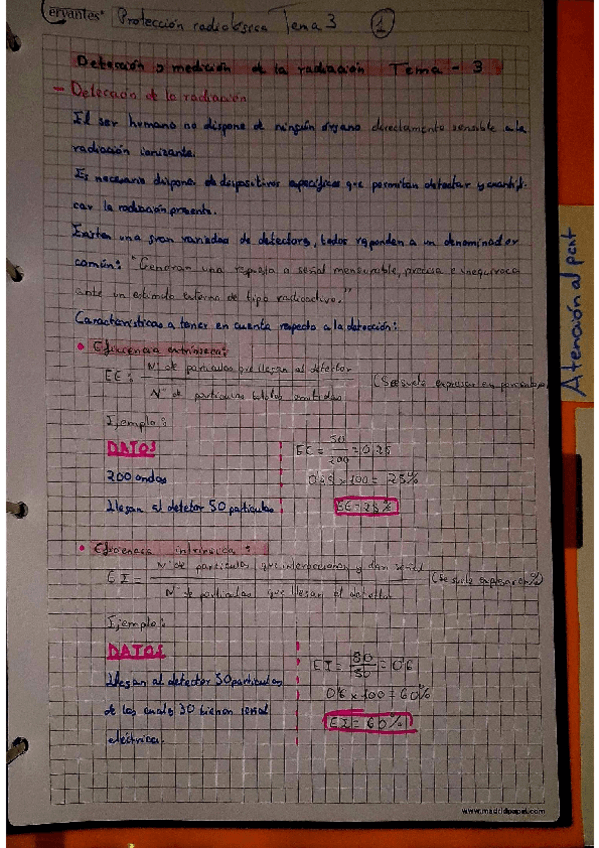 ervantes* Protección radiológica Tema 3 1
Detección y medición de la radiación Tema - 3
- Detección de la radiación
El ser humano no dispone de ningún órgano directamente sensible a la
radiación ionizante.
Es necesario disponer de dispositivos específicos que permitan detectar y cuantifi-
car la radiación presente.
Existen una gran variedad de detectores, todos responden a un denominador
común: "Generan una respuesta o señal mensurable, precisa e inequívoca
ante un estímulo externo de tipo radiactivo."
Características a tener en cuenta respecto a la detección:
• Eficiencia extrínseca:
EE = Nº de partículas que llegan al detector (Se suele expresar en porcentaje)
Nº de partículas totales emitidas
Ejemplo:
DATOS
200 ondas
Llegan al detector 50 partículas
EE = 50/200 = 0,25
× 100 = 25%
EE = 25%
• Eficiencia intrínseca:
EI = Nº de partículas que interaccionan y dan señal (Se suele expresar en %)
Nº de partículas que llegan al detector
Ejemplo:
DATOS
Llegan al detector 50 partículas
de las cuales 30 tienen señal
eléctrica.
EI = /50 = 0'6
0'6 × 100 = 60%
EI = 60%
Atención al pcnt
www.madridpapel.com